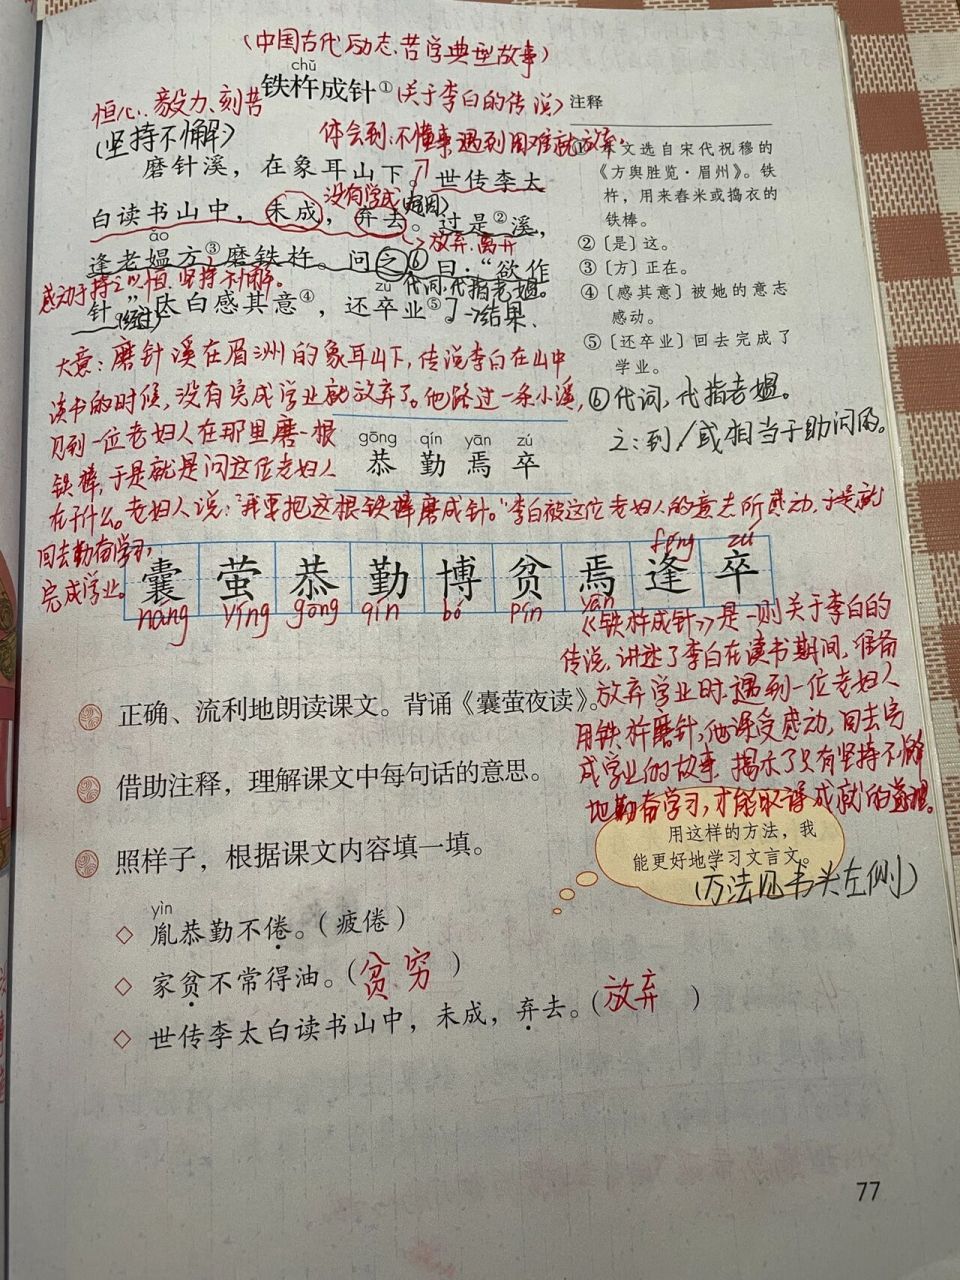 (中国古代励志、苦学典型故事)
chǔ
铁杵成针① (关于李白的传说)
恒心、毅力、刻苦
(坚持不懈)
体会到:不懂事遇到困难就放弃
磨针溪，在象耳山下。世传李太
没有学成 (原因)
白读书山中，未成，弃去。过是②溪，
放弃、离开
ǎo
逢老媪方③磨铁杵。问之⑥，曰：“欲作
感动于持之以恒、坚持不懈。
zú
代词,代指老媪。
针。”太白感其意④，还卒业⑤。
(经过)
→结果、
注释
① 本文选自宋代祝穆的
《方舆胜览·眉州》。铁
杵，用来舂米或捣衣的
铁棒。
②〔是〕这。
③〔方〕正在。
④〔感其意〕被她的意志
感动。
⑤〔还卒业〕回去完成了
学业。
⑥代词,代指老媪。
之:到/或相当于助词的。
大意:磨针溪在眉洲的象耳山下,传说李白在山中
读书的时候,没有完成学业就放弃了。他路过一条小溪,
见到一位老妇人在那里磨一根
铁棒,于是就是问这位老妇人
在干什么。老妇人说:“我要把这根铁棒磨成针。”李白被这位老妇人的意志所感动,于是就
回去勤奋学习,
完成学业。
gōng qín yān zú
恭 勤 焉 卒
féng zú
囊 萤 恭 勤 博 贫 焉 逢 卒
náng yíng gōng qín bó pín yān
《铁杵成针》是一则关于李白的
传说,讲述了李白在读书期间,准备
放弃学业时,遇到一位老妇人
用铁杵磨针,他深受感动,回去完
成学业的故事,揭示了只有坚持不懈
地勤奋学习,才能取得成就的道理。
正确、流利地朗读课文。背诵《囊萤夜读》。
借助注释，理解课文中每句话的意思。
照样子，根据课文内容填一填。
用这样的方法，我
能更好地学习文言文。
(方法见书头左侧)
yìn
◇ 胤恭勤不倦。（疲倦）
◇ 家贫不常得油。（贫穷）
◇ 世传李太白读书山中，未成，弃去。（放弃）
77